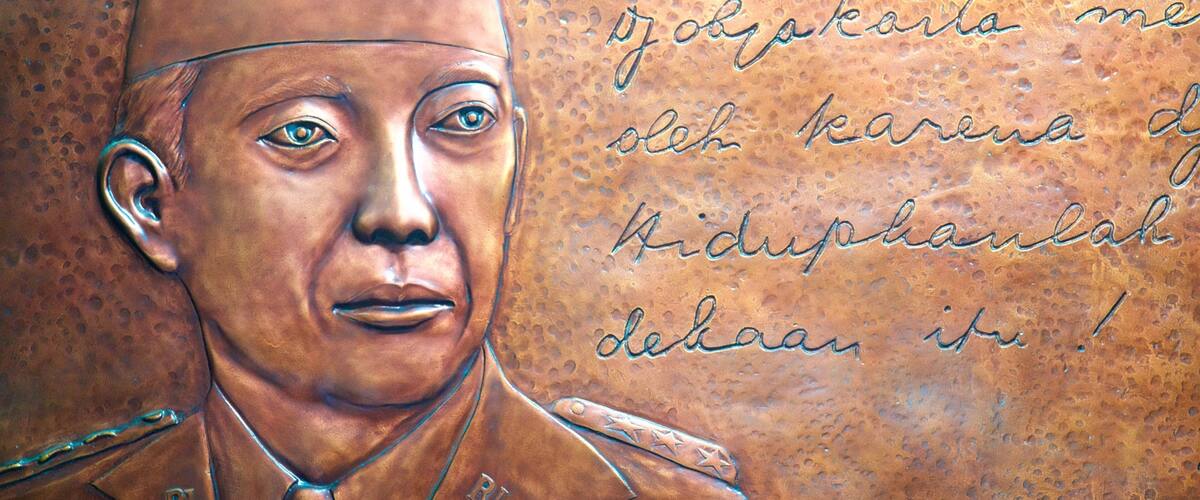 Djobjakarta me
oleh karena dj
Hidupkanlah
dekaan itu !
RI RI